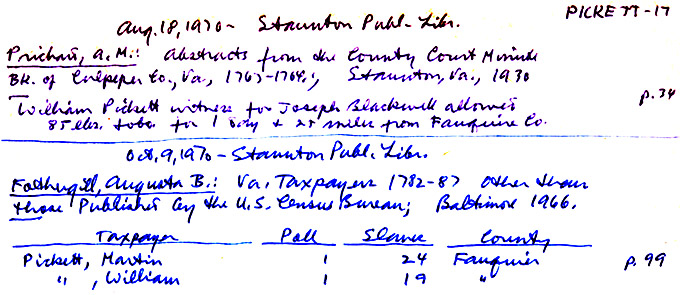 PICKETT-17
Aug. 18, 1970 - Staunton Publ. Libr.
Prichard, A.M.: Abstracts from the County Court Minute
Bk. of Culpeper Co., Va., 1763-1764; Staunton, Va., 1930
William Pickett witness for Joseph Blackwell allowed p.34
85 lbs. tobo for 1 day & 25 miles from Fauquire Co.
Oct. 9, 1970 - Staunton Publ. Libr.
Fothergill, Augusta B.: Va. Taxpayers 1782-87 other than
those Published by the U.S. Census Bureau; Baltimore 1966.
Taxpayer Poll Slaves County
Pickett, Martin 1 24 Fauquier p. 99
" , William 1 19 "